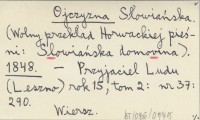 Ojczyzna Słowiańska.
(Wolny przekład Horwackiej pieś-
ni: Slowianska domovina).
1848. - Przyjaciel Ludu
(Leszno) rok 15, tom 2: nr 37:
290.
Wiersz.